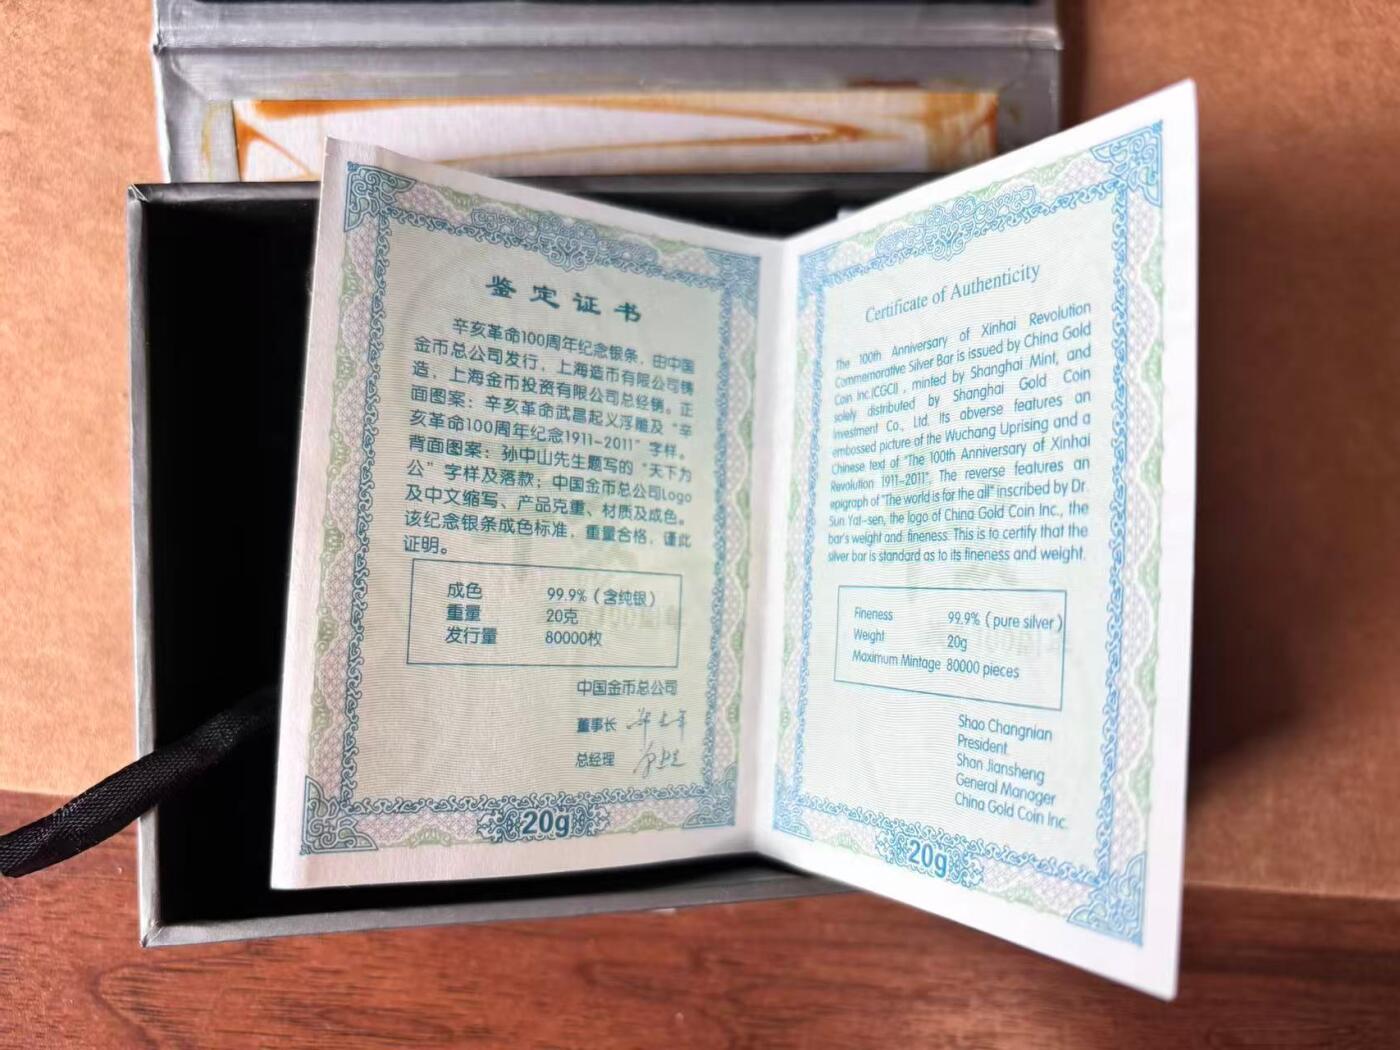 鉴定证书
辛亥革命100周年纪念银条，由中国
金币总公司发行，上海造币有限公司铸
造，上海金币投资有限公司总经销。正
面图案：辛亥革命武昌起义浮雕及“辛
亥革命100周年纪念1911-2011”字样。
背面图案：孙中山先生题写的“天下为
公”字样及落款；中国金币总公司Logo
及中文缩写、产品克重、材质及成色。
该纪念银条成色标准，重量合格，谨此
证明。
成色 99.9%（含纯银）
重量 20克
发行量 80000枚
中国金币总公司
董事长
总经理
20g
Certificate of Authenticity
The 100th Anniversary of Xinhai Revolution
Commemorative Silver Bar is issued by China Gold
Coin Inc.(CGCI) , minted by Shanghai Mint, and
solely distributed by Shanghai Gold Coin
Investment Co., Ltd. Its obverse features an
embossed picture of the Wuchang Uprising and a
Chinese text of "The 100th Anniversary of Xinhai
Revolution 1911-2011". The reverse features an
epigraph of "The world is for the all" inscribed by Dr.
Sun Yat-sen, the logo of China Gold Coin Inc., the
bar's weight and fineness. This is to certify that the
silver bar is standard as to its fineness and weight.
Fineness 99.9% ( pure silver )
Weight 20g
Maximum Mintage 80000 pieces
Shao Changnian
President
Shan Jiansheng
General Manager
China Gold Coin Inc.
20g